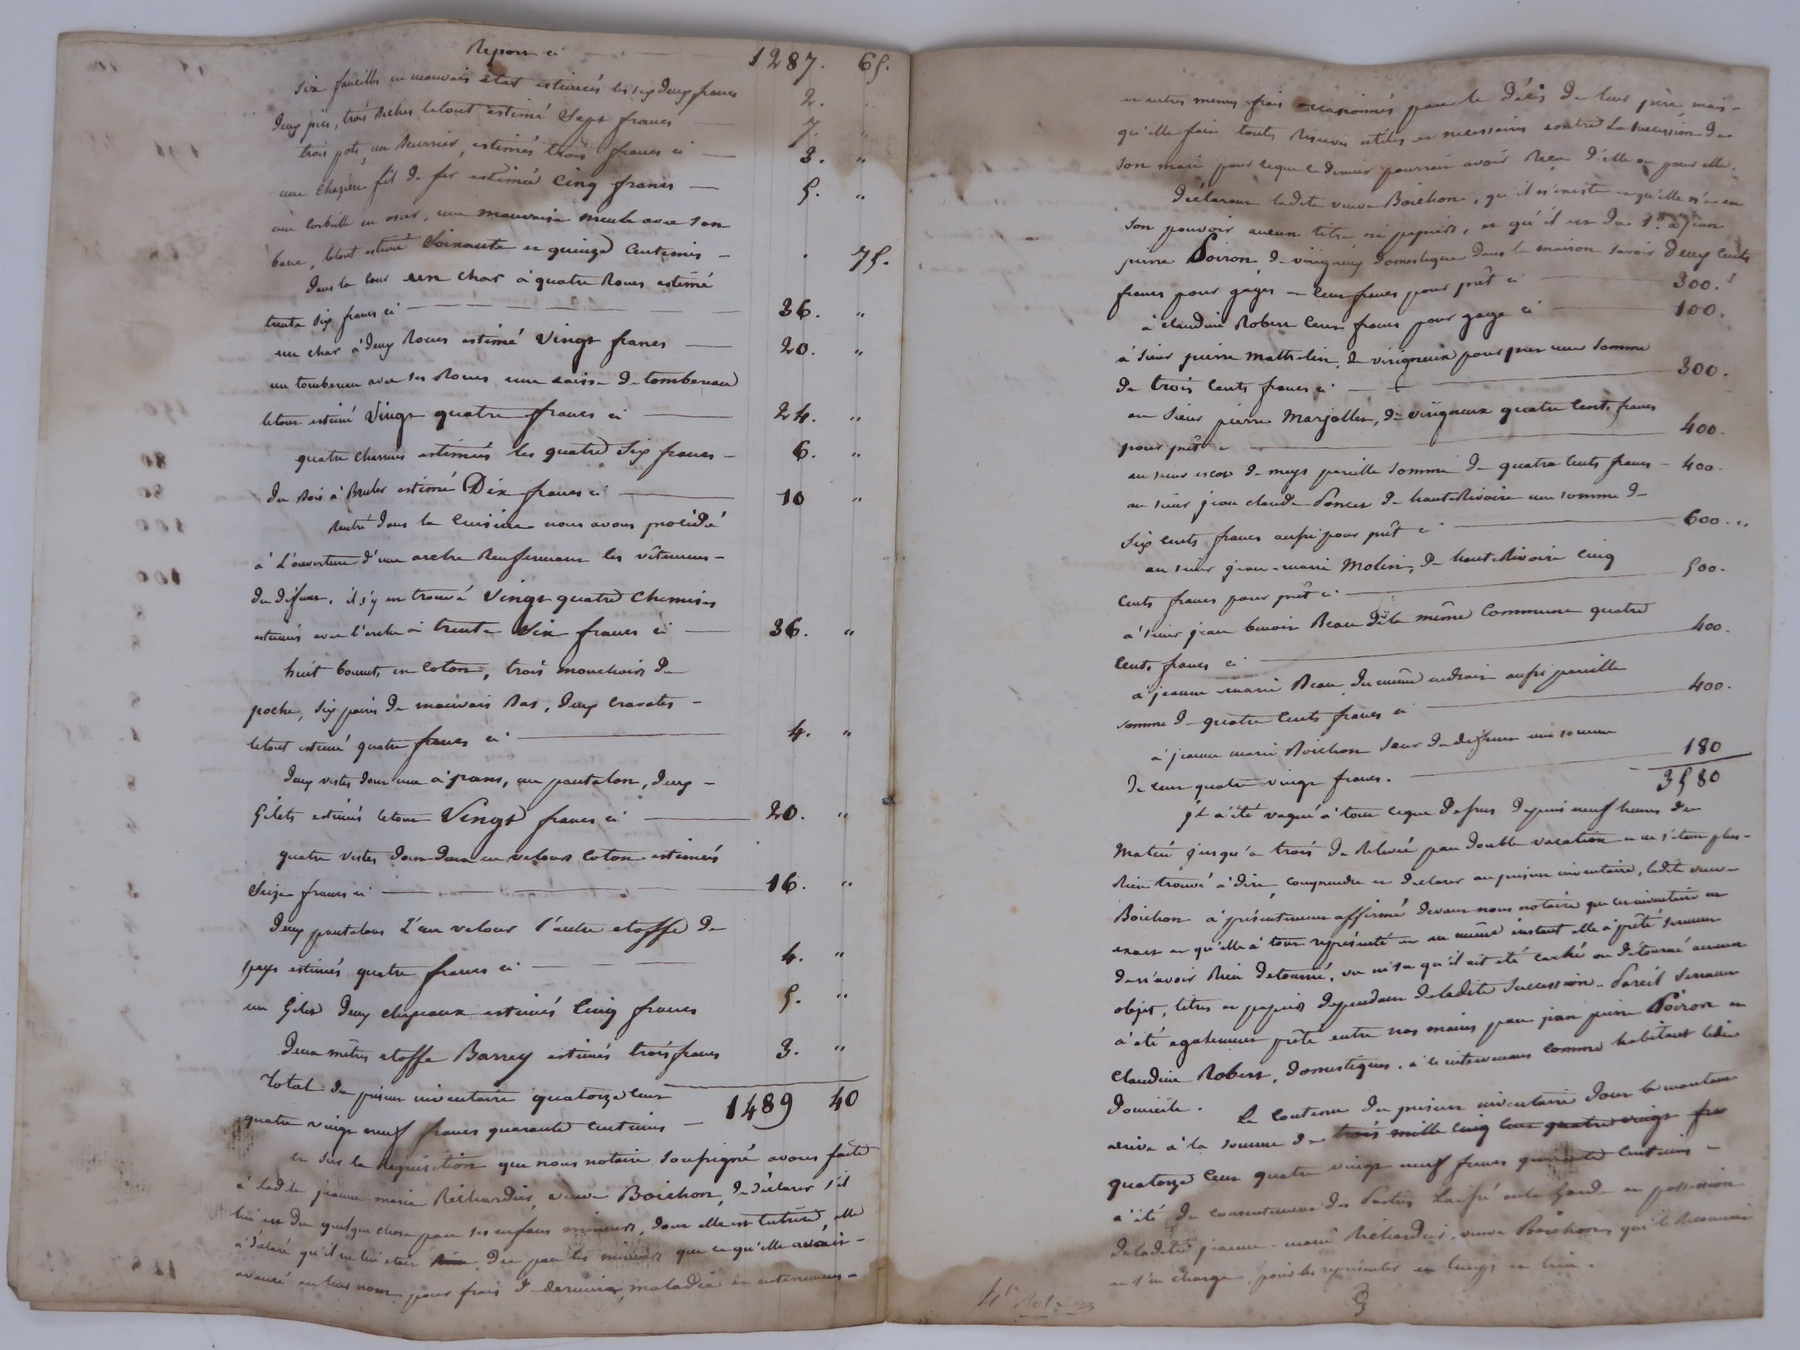 Report ci 1287. 65.
Six faucilles en mauvais état estimés les six deux francs 2.
deux pics, trois haches le tout estimé Sept francs 7. "
trois pots, un beurrier, estimés trois francs ci 3. "
une chazière fil de fer estimée Cinq francs 5. "
une corbeille en osier, une mauvaise meule avec son
banc, letout estimé Soixante et quinze Centimes . 75.
dans la cour un Char à quatre Roues estimé
trente six francs ci 36. "
un char à deux Roues estimé Vingt francs 20. "
un tombereau avec ses Roues une caisse de tombereau
letout estimé Vingt quatre francs ci 24. "
quatre charrues estimées les quatre Six francs 6. "
du Bois à Bruler estimé Dix francs ci 10 "
Rentré dans la Cuisine nous avons procédé
à L'ouverture d'une arche Renfermant les vêtemens
du défunt, il s'y en trouve Vingt quatre Chemises
estimées avec l'arche à trente Six francs ci 36. "
huit bonnets en Coton, trois mouchoirs de
poche, Six paires de mauvais Bas, deux Cravates
letout estimé quatre francs ci 4. "
deux vestes dont une à pans, un pantalon, deux
Gilets estimés letout Vingt francs ci 20. "
quatre vestes dont deux en velours Coton estimées
Seize francs ci 16. "
deux pantalons L'un velour l'autre etoffe de
pays estimés quatre francs ci 4. "
un Gilet deux chapeaux estimés Cinq francs 5. "
deux mètres etoffe Barrey estimés trois francs 3. "
Total du présent inventaire quatorze Cent
quatre vingt neuf francs quarante Centimes 1489 40
et sur la Réquisition que nous notaire Soussigné avons faite
à ladite jeanne marie Richardier, veuve Boichon, de déclarer s'il
lui est du quelque chose par ses enfans mineurs, dont elle est tutrice, elle
à déclaré qu'il ne lui etait Rien du par les mineurs que ce qu'elle avait
avancé en leur nom pour frais de dernière maladie et enterrement
et autres menus frais occasionnés par le décès de leur père, mais
qu'elle fait toutes Réserves utiles et necessaires contre La Succession de
son mari pour ceque ce dernier pourrait avoir Reçu d'elle ou pour elle.
Déclarant ladite veuve Boichon, qu'il n'existe et qu'elle n'a en
son pouvoir aucun titre ni papiers, et qu'il est du 1° à jean
pierre Poiron de virigneux domestique dans la maison savoir deux Cents
francs pour gages et Cent francs pour prêt ci 300. f
à Claudine Robert Cent francs pour gage ci 100.
à Sieur pierre Mathelin, de virigneux pour prêt une Somme
de trois Cents francs ci 300.
au Sieur pierre Marjollet, de virigneux quatre Cents francs
pour prêt ci 400.
au sieur escot de meys pareille Somme de quatre Cents francs 400.
au sieur jean claude Poncet de haute Rivoire une somme de
Six Cents francs aussi pour prêt ci 600. "
au sieur jean-marie Molin, de haute Rivoire Cinq
Cents francs pour prêt ci 500.
à Sieur jean benoit Beau dela même Commune quatre
Cents francs ci 400.
à jeanne marie Beau, du même endroit aussi pareille
somme de quatre Cents francs ci 400.
à jeanne marie Boichon Sœur du défunt une somme
de cent quatre vingt francs. 180
3580
Il a été vaqué à tout ceque Dessus depuis neuf heures du
Matin jusqu'à trois de Relevée par double vacation et ne s'etant plus
Rien trouvé à dire, comprendre et déclarer au présent inventaire, ladite veuve
Boichon à présentement affirmé devant nous notaire que cet inventaire est
exact et qu'elle à tout représenté et au même instant elle à prêté Serment
de n'avoir Rien détourné, vu ni su qu'il ait été caché ou détourné aucun
objet, titres et papiers dependant deladite Succession. Pareil Serment
à été egalement prêté entre nos mains par jean pierre Poiron et
Claudine Robert, domestiques, à ce intervenans comme habitant ledit
domicile. Le Contenu du présent inventaire dont le montant
arrive à la somme de trois mille Cinq Cent quatre vingt fra
quatorze Cent quatre vingt neuf francs quarante Centimes
a été du consentement des Parties Laissé en la Garde et possession
deladite jeanne-marie Richardier, veuve Boichon, qui le Reconnait
et s'en charge, pour les représenter en temps et lieu.